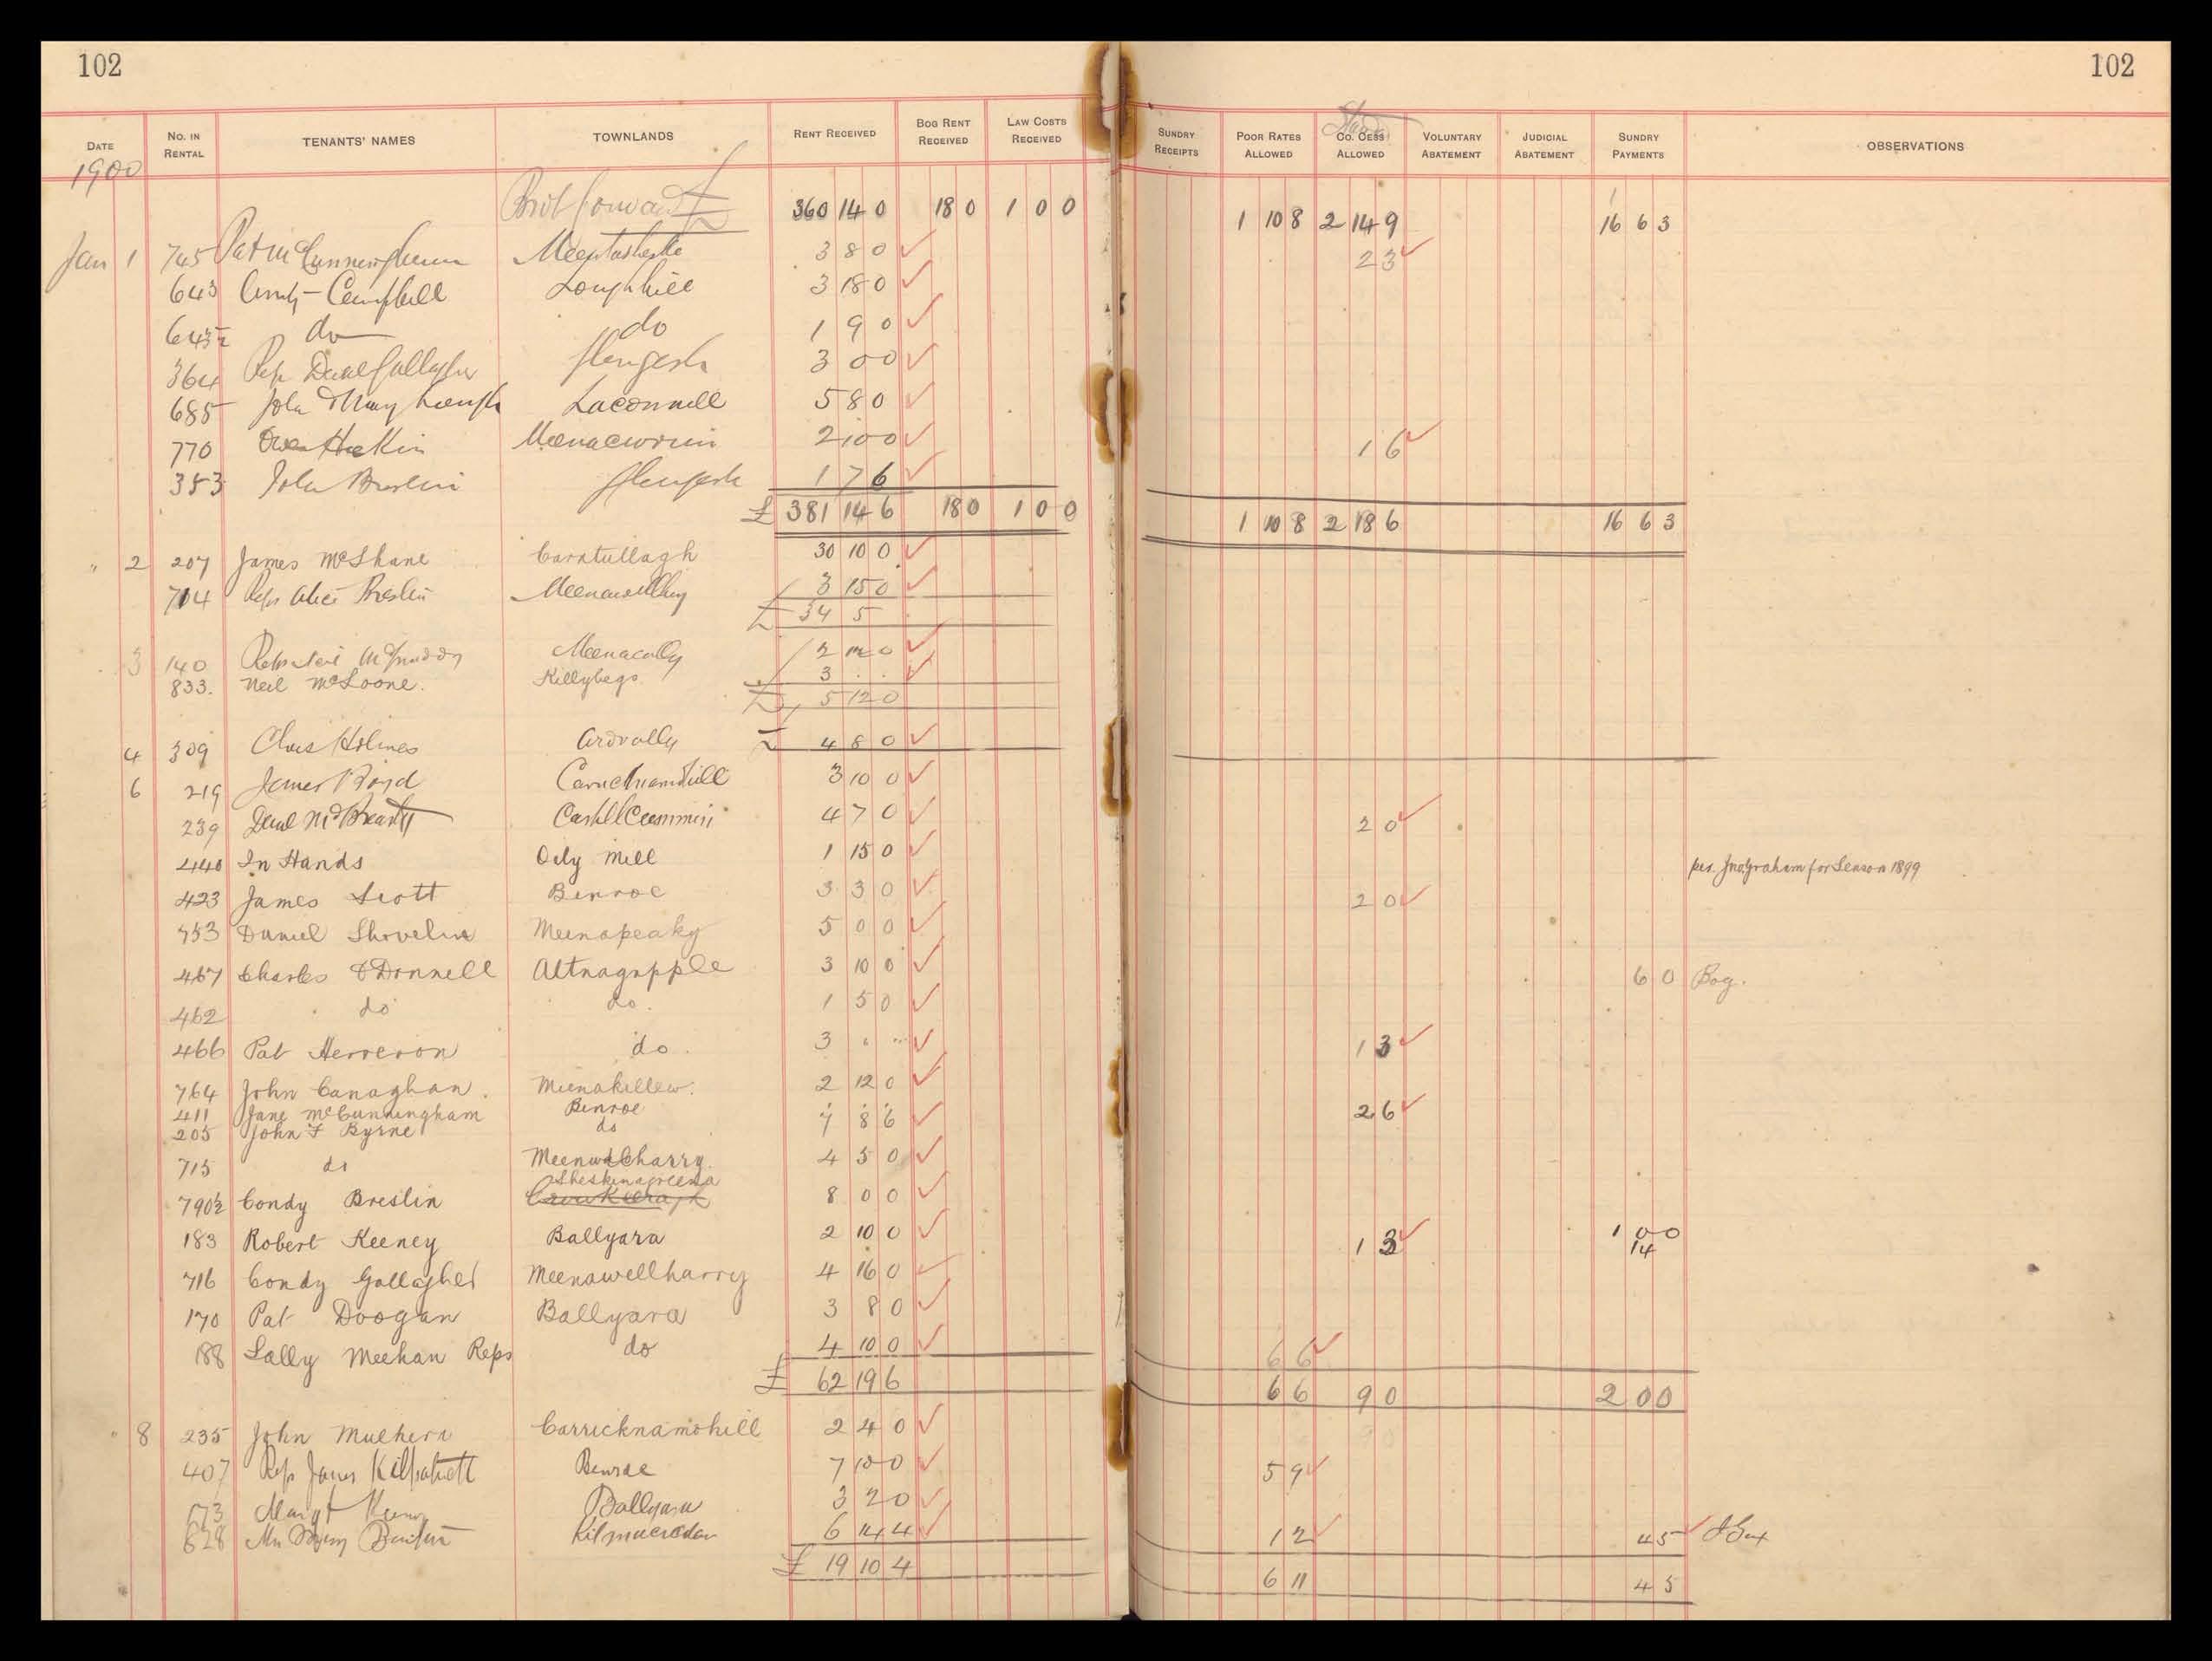 102
102
DATE No. IN RENTAL TENANTS' NAMES TOWNLANDS RENT RECEIVED BOG RENT RECEIVED LAW COSTS RECEIVED SUNDRY RECEIPTS POOR RATES ALLOWED CO. CESS ALLOWED VOLUNTARY ABATEMENT JUDICIAL ABATEMENT SUNDRY PAYMENTS OBSERVATIONS
1900
Brot forward £ 360 14 0 18 0 1 0 0 1 10 8 2 14 9 16 6 3
Jan 1 745 Pat McCunningham 3 8 0 2 3
643 Andy Campbell Loughhill 3 18 0
643½ do do 1 9 0
364 Reps Danl Gallagher Glengesh 3 0 0
685 John Laconnell 5 8 0
770 Owen Meenacurrin 2 10 0 1 6
353 John Breslin Glengesh 1 7 6
£ 381 14 6 18 0 1 0 0 1 10 8 2 18 6 16 6 3
" 2 207 James McShane Carntullagh 30 10 0
704 Reps Alice Breslin 3 15 0
£ 34 5
3 140 Reps Neil Meenacally 2 12 0
833. Neil McLoone. Killybegs 3 . .
£ 5 12 0
4 309 Chas Holmes Ardvally £ 4 8 0
6 219 James Boyd 3 10 0
239 Danl McBrearty Cashel Cummin 4 7 0 2 0
440 In Hands Oily Mill 1 15 0 per. Jno. Graham for Season 1899
423 James Scott Binroe 3 3 0 2 0
753 Daniel Shovelin Meenapeaky 5 0 0
467 Charles O'Donnell Altnagapple 3 10 0 6 0 Bog.
462 do do. 1 5 0
466 Pat Herreron do. 3 " " 1 3
764 John Canaghan. Meenakillew. 2 12 0
411 Jane McCunningham Binroe . . . 2 6
205 John F Byrne do 7 8 6
715 do Meenawelharry. 4 5 0
Sheskinagreena
790½ Condy Breslin 8 0 0
183 Robert Keeney Ballyara 2 10 0 1 3 1 0 0
14
716 Condy Gallagher Meenawellharry 4 16 0
170 Pat Doogan Ballyara 3 8 0
188 Sally Meehan Reps do 4 10 0 6 6
£ 62 19 6 6 6 9 0 2 0 0
" 8 235 John Mulhern Carricknamohill 2 4 0
407 Reps James Kilpatrick Binroe 7 10 0 5 9
173 Margt Ballyara 3 2 0
628 Mrs 6 14 4 1 2 4 5
£ 19 10 4 6 11 4 5